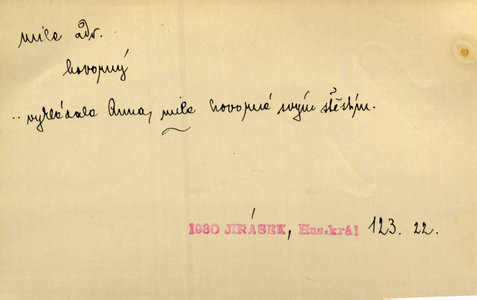 mile adv.
hovorný
.. vykládala Anna, mile hovorná svým štěstím.
1930 JIRÁSEK, Hus.král 123. 22.